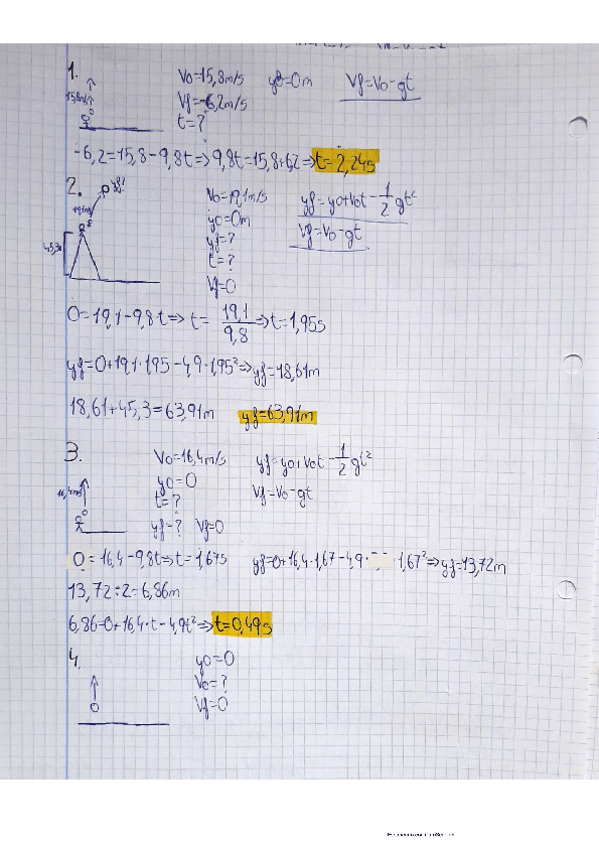 1.
15,8m/s
V0=15,8m/s y0=0m Vf=V0-gt
Vf=-6,2m/s
t=?
-6,2=15,8-9,8t=>9,8t=15,8+6,2=>t=2,24s
2.
yf?
19,1m/s
45,3m
V0=19,1m/s yf=y0+V0t-1/2gt²
y0=0m Vf=V0-gt
yf=?
t=?
Vf=0
0=19,1-9,8t=>t=19,1/9,8=>t=1,95s
yf=0+19,1·1,95-4,9·1,95²=>yf=18,61m
18,61+45,3=63,91m yf=63,91m
3.
16,4m/s
V0=16,4m/s yf=y0+V0t-1/2gt²
y0=0 Vf=V0-gt
t=?
yf=? Vf=0
0=16,4-9,8t=>t=1,67s yf=0+16,4·1,67-4,9·1,67²=>yf=13,72m
13,72:2=6,86m
6,86=0+16,4·t-4,9t²=>t=0,49s
4.
y0=0
V0=?
Vf=0